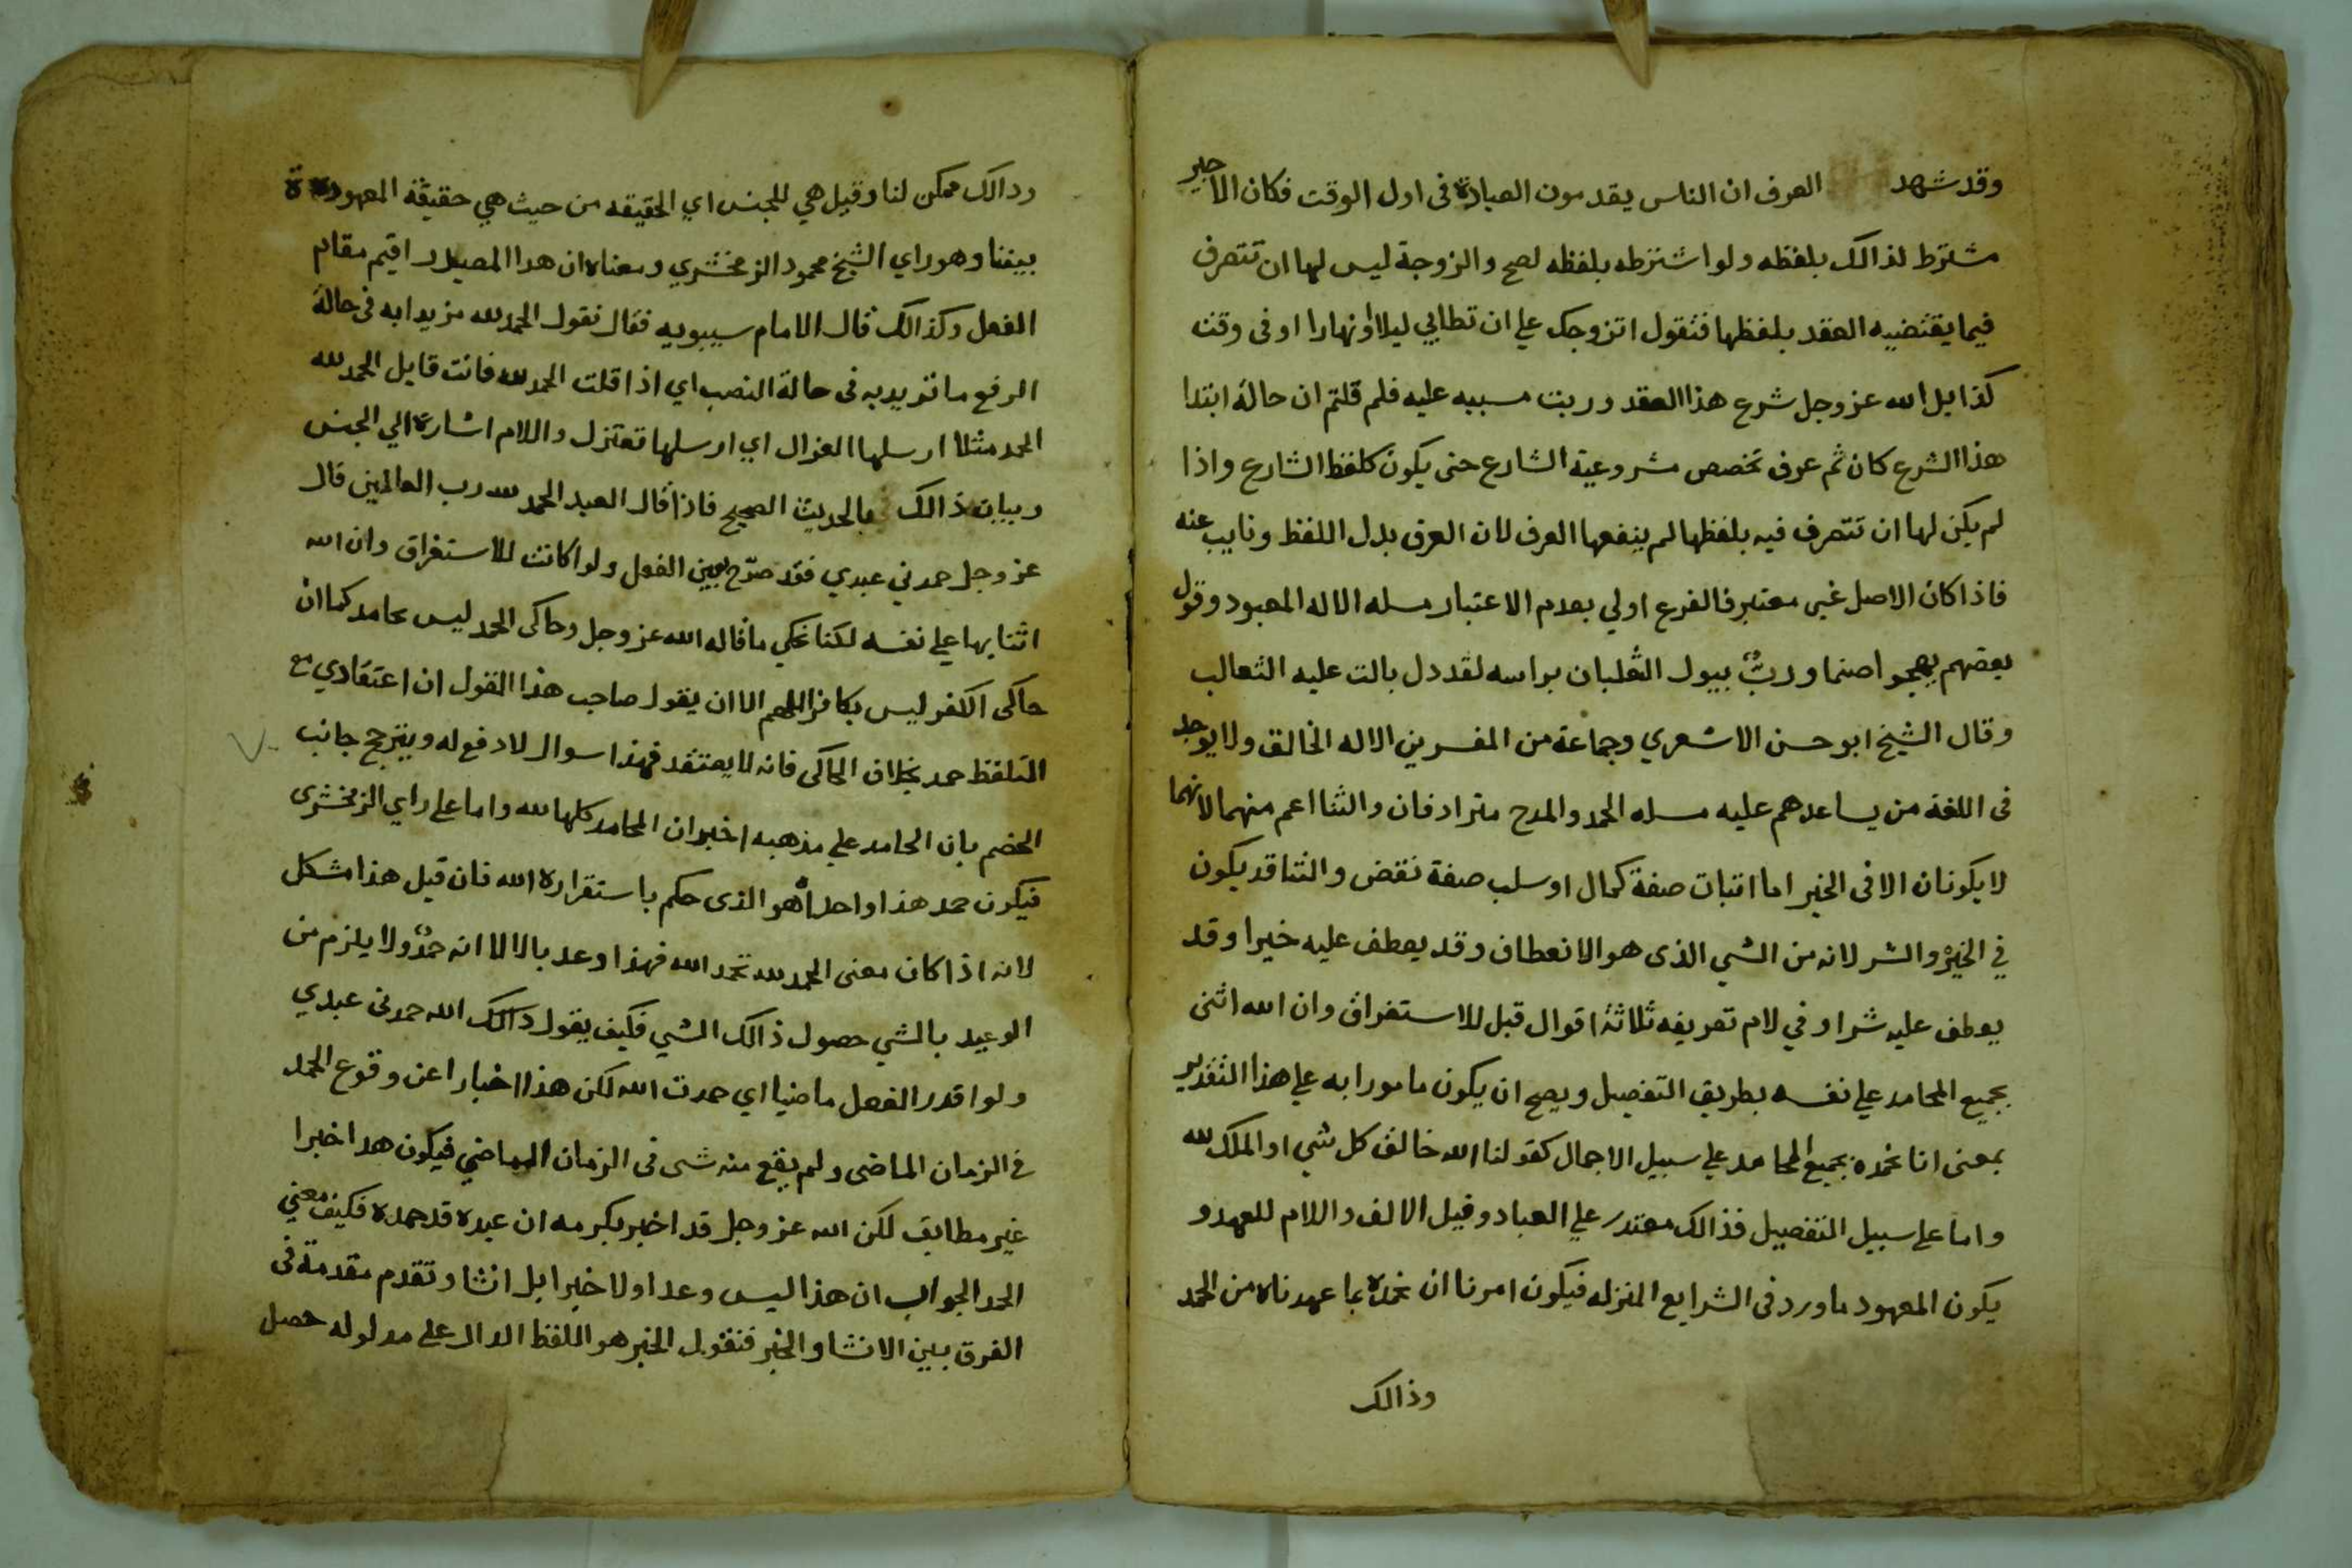 وقد شهد العرف ان الناس يقدمون العبادة فى اول الوقت فكان الاجير
مشترط لذالك بلفظه ولو اشترطه بلفظه لصح والزوجة ليس لها ان تتصرف
فيما يقتضيه العقد بلفظها فتقول اتزوجك علي ان تطاني ليلا او نهارا او فى وقت
كذا بل الله عز وجل شرع هذا العقد ورتب مسببه عليه فلم قلتم ان حالة ابتدا
هذا الشرع كان ثم عرف تخصص مشروعية الشارع حتى يكون كلفظ الشارع واذا
لم يكن لها ان تتصرف فيه بلفظها لم ينفعها العرف لان العرف بدل اللفظ ونايب عنه
فاذا كان الاصل غير معتبر فالفرع اولي بعدم الاعتبار مسله الاله المعبود وقول
بعضهم يهجوا صنما وربٌ يبول الثعلبان براسه لقد دل بالت عليه الثعالب
وقال الشيخ ابو حسن الاشعري وجماعة من المفسرين الاله الخالق ولا يوجد
فى اللغة من يساعدهم عليه مسله الحمد والمدح مترادفان والثنا اعم منهما لانهما
لا يكونان الا فى الخير اما اثبات صفة كمال او سلب صفة نقض والثنا قد يكون
في الخير والشر لانه من الشي الذى هو الانعطاف وقد يعطف عليه خيرا وقد
يعطف عليه شرا وفي لام تعريفه ثلاثة اقوال قيل للاستغراق وان الله اثنى
بجميع المحامد علي نفسه بطريق التفصيل ويصح ان يكون مامورا به علي هذا التقدير
بمعنى انا نحمده بجميع المحامد علي سبيل الاجمال كقولنا الله خالق كل شي او الملك لله
واما على سبيل التفصيل فذالك معتدر علي العباد وقيل الالف واللام للعهد و
يكون المعهود ما ورد فى الشرايع المنزله فيكون امرنا ان نحمده بما عهدناه من الحمد
وذالك
ودالك ممكن لنا وقيل هي للجنس اي الحقيقه من حيث هي حقيقة المعهودة
بيننا وهو راي الشيخ محمود الزمخشري ومعناه ان هدا المصدر اقيم مقام
الفعل وكذالك قال الامام سيبويه فقال نقول الحمد لله مزيدا به فى حالة
الرفع ما تريد به فى حالة النصب اي اذا قلت الحمد لله فانت قايل الحمد لله
الحمد مثلا ارسلها الغزال اي ارسلها تعتزل واللام اشارة الي الجنس
وبيان ذالك بالحديث الصحيح فاذا قال العبد الحمد لله رب العالمين قال
عز وجل حمدني عبدي فقد صرّح بعين الفعل ولو كانت للاستغراق وان الله
اثنا بها علي نفسه لكنا نحكي ما قاله الله عز وجل وحاكى الحمد ليس بحامد كما ان
حاكى الكفر ليس بكافر اللهم الا ان يقول صاحب هذا القول ان اعتقادي مع
التلفظ حمد بخلاف الحاكى فانه لا يعتقد فهذا سوال لا دفع له ويترجح جانب
الخضم بان الحامد علي مذهبه اخبر ان المحامد كلها لله واما على راي الزمخشرى
فيكون حمد هذا واحدا هو الذى حكم باستقراره الله فان قيل هذا مشكل
لانه اذا كان معنى الحمد لله نحمد الله فهذا وعد بالا لا انه حمدٌ ولا يلزم من
الوعيد بالشي حصول ذالك الشي فكيف يقول ذالك الله حمدنى عبدي
ولو اقدر الفعل ماضيا اي حمدت الله لكن هذا اخبارا عن وقوع الحمد
فى الزمان الماضى ولم يقع منه شى فى الزمان الماضي فيكون هدا خبرا
غير مطابق لكن الله عز وجل قد اخبر بكرمه ان عبده قد حمده فكيف معني
الحمد الجواب ان هذا ليس وعدا ولا خبرا بل انشا وتقدم مقدمة فى
الفرق بين الانشا والخبر فنقول الخبر هو اللفظ الدال على مدلوله حصل